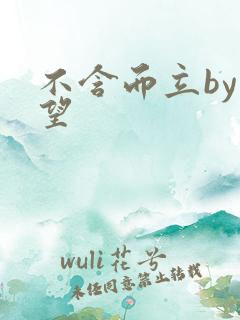 不舍而立by
望
wuli花兮
未经同意禁止转载